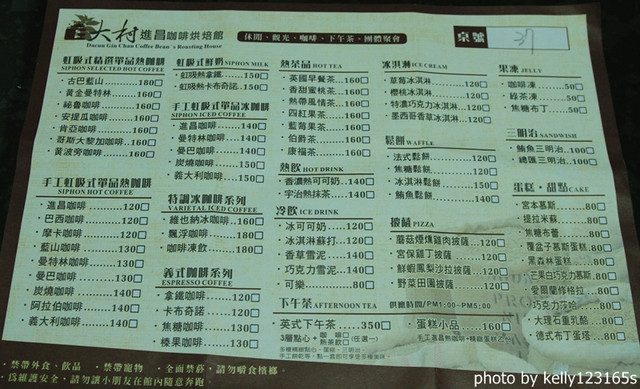 大村 進昌咖啡烘焙館
Dacun Gin Chan Coffee Bean's Roasting House
休閒、觀光、咖啡、下午茶、團體聚會
桌號 37
虹吸式精選單品熱咖啡
SIPHON SELECTED HOT COFFEE
·古巴藍山 180□
·黃金曼特林 160□
·秘魯咖啡 160□
·安提瓜咖啡 160□
·肯亞咖啡 160□
·哥斯大黎加咖啡 160□
·黃波旁咖啡 160□
手工虹吸式單品熱咖啡
SIPHON HOT COFFEE
·進昌咖啡 120□
·巴西咖啡 120□
·摩卡咖啡 120□
·藍山咖啡 130□
·曼特林咖啡 130□
·曼巴咖啡 130□
·炭燒咖啡 140□
·阿拉伯咖啡 140□
·義大利咖啡 140□
虹吸式鮮奶 SIPHON MILK
·虹吸熱拿鐵 150□
·虹吸熱卡布奇諾 150□
手工虹吸式單品冰咖啡
SIPHON ICED COFFEE
·進昌咖啡 140□
·曼特林咖啡 140□
·曼巴咖啡 140□
·炭燒咖啡 150□
·義大利咖啡 150□
特調冰咖啡系列
VARIETAL ICED COFFEE
·維也納冰咖啡 160□
·飄浮咖啡 180□
·咖啡凍飲 180□
義式咖啡系列
ESPRESSO COFFEE
·拿鐵咖啡 120□
·卡布奇諾 120□
·焦糖咖啡 130□
·榛果咖啡 130□
熱茶品 HOT TEA
·英國早餐茶 160□
·香甜蜜桃茶 160□
·熱帶風情茶 160□
·四紅果茶 160□
·藍莓果茶 160□
·伯爵茶 160□
·康福茶 160□
熱飲 HOT DRINK
·香濃熱可可奶 140□
·宇治熱抹茶 140□
冷飲 ICE DRINK
·冰可可奶 140□
·冰淇淋蘇打 120□
·香草雪泥 140□
·巧克力雪泥 140□
·可樂 80□
下午茶 AFTERNOON TEA 供應時間/PM1:00~PM5:00
·英式下午茶 350□
3層點心+咖啡 熱茶飲□(任選一)
·蛋糕小品 160□
冰淇淋 ICE CREAM
·草莓冰淇淋 120□
·櫻桃冰淇淋 120□
·特濃巧克力冰淇淋 120□
·墨西哥香草冰淇淋 120□
鬆餅 WAFFLE
·法式鬆餅 120□
·焦糖鬆餅 120□
·冰淇淋鬆餅 150□
·鮪魚鬆餅 150□
披薩 PIZZA
·蘑菇煙燻雞肉披薩 120□
·宮保雞丁披薩 120□
·鮮蝦鳳梨沙拉披薩 120□
·野菜田園披薩 120□
果凍 JELLY
·咖啡凍 50□
·綠茶凍 50□
·焦糖布丁 50□
三明治 SANDWISH
·鮪魚三明治 100□
·總匯三明治 100□
蛋糕·甜點 CAKE
·宮本慕斯 80□
·提拉米蘇 80□
·焦糖布蕾 80□
·覆盆子慕斯蛋糕 80□
·黑森林蛋糕 80□
·芒果白巧克力慕斯 80□
·愛爾蘭修格拉 80□
·巧克力莎哈 80□
·大理石重乳酪 80□
·德式布丁蛋塔 80□
·禁帶外食、飲品 ·禁帶寵物 ·全面禁菸，請勿嚼食檳榔
·為維護安全，請勿讓小朋友在館內隨意奔跑
photo by kelly123165s